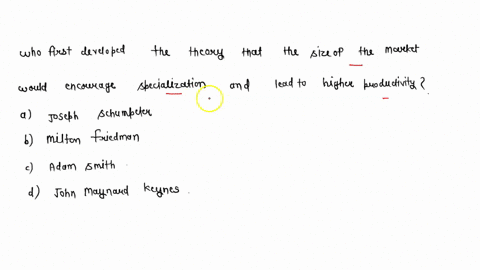 who first developed the theory that the size of the market
would encourage specialization and lead to higher productivity?
a) Joseph Schumpeter
b) Milton friedman
c) Adam smith
d) John Maynard keynes